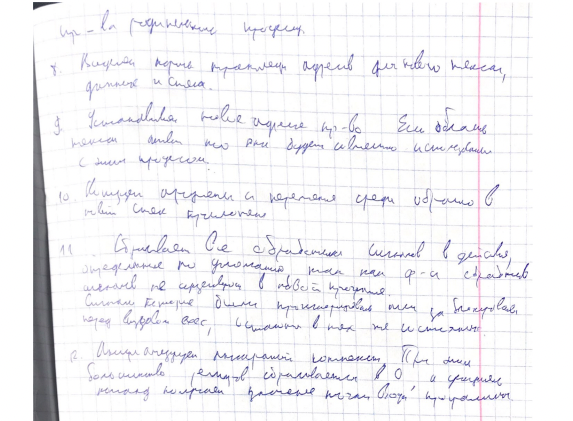 пр-ва родительского процесса.
8. Выделяет новые таблицы адресов для нового текста,
данных и стека.
9. Устанавливает новое адресное пр-во. Если область
текста
с этим процессом.
10. Копирует аргументы и переменные среды обратно в
новый стек приложения
11. Сбрасывает все обработчики сигналов в действия,
определённые по умолчанию так как ф-и обработчиков
сигналов не существуют в новой программе.
Сигналы которые были проигнорированы или заблокированы
перед вызовом exec, остаются в тех же состояниях.
12. Инициализирует аппаратный контекст. При этом
большинство регистров сбрасывается в 0, а указатель
команд получает значение точки входа программы